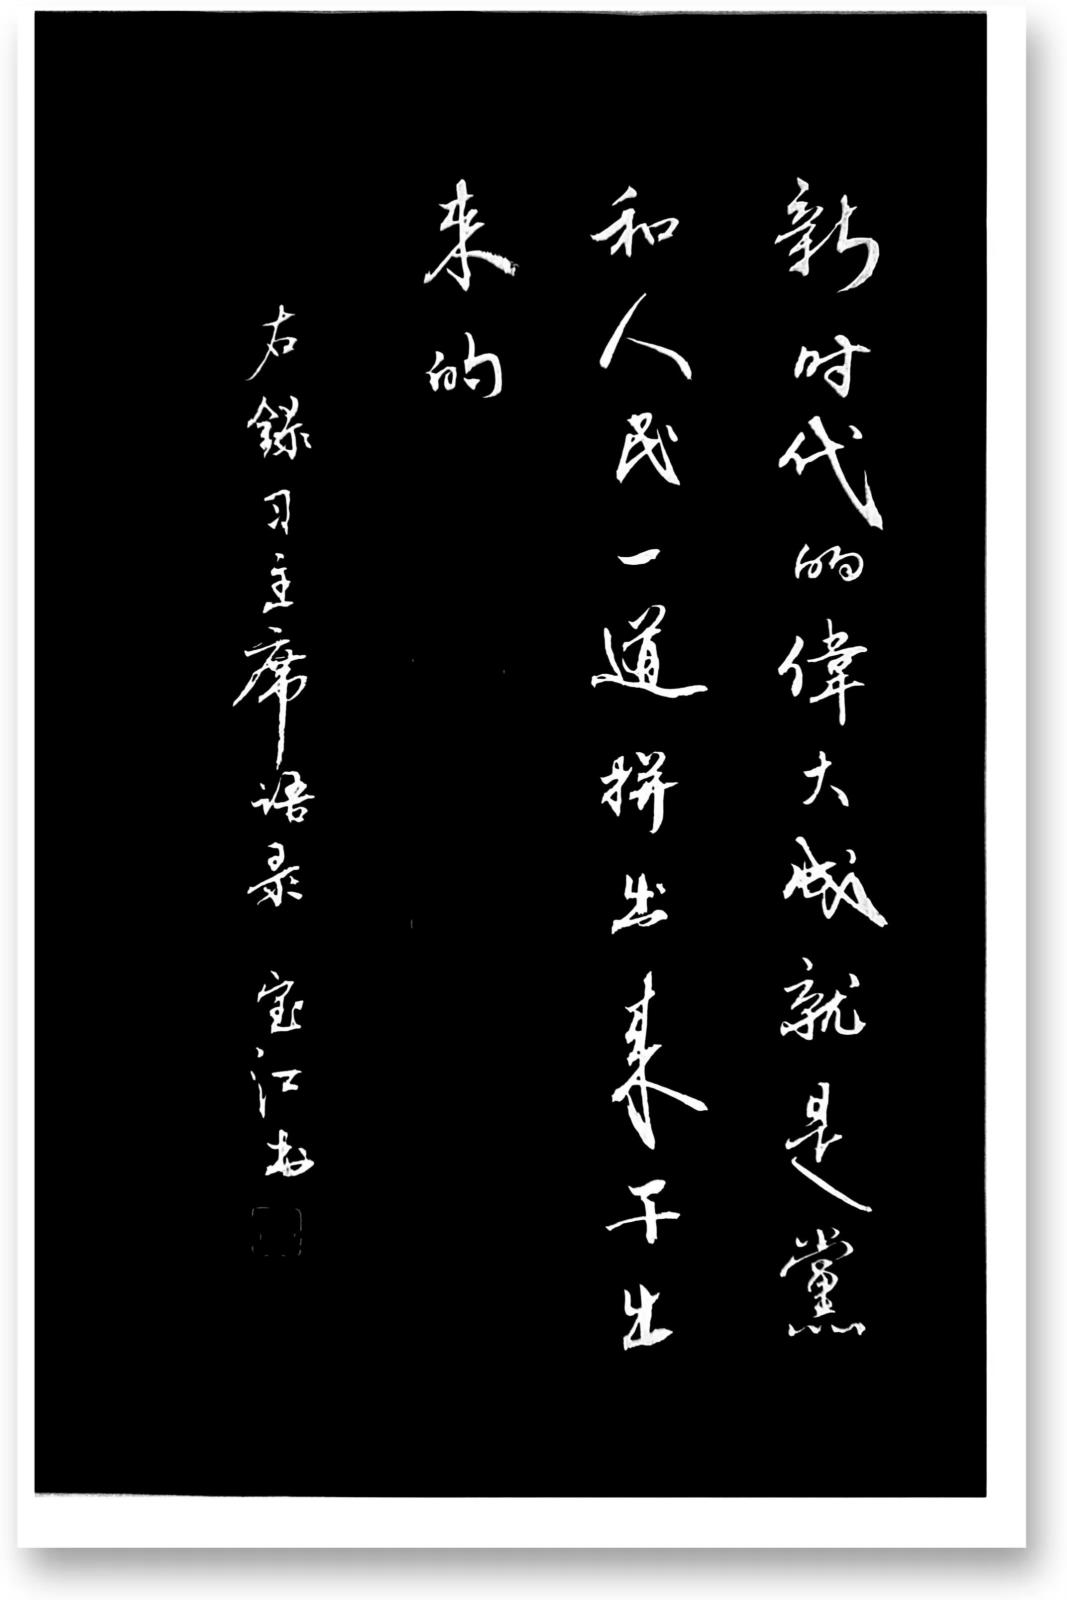 新时代的偉大成就是黨
和人民一道拼出来干出
来的
右録习主席语录 宝江书